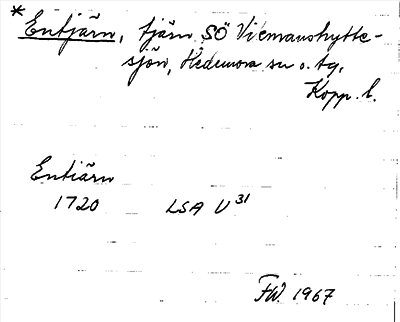 * Entjärn, tjärn SÖ Vicmanshytte-
sjön, Hedemora sn o. tg,
Kopp. l.
Entiärn
1720 LSA U 31
FW. 1967